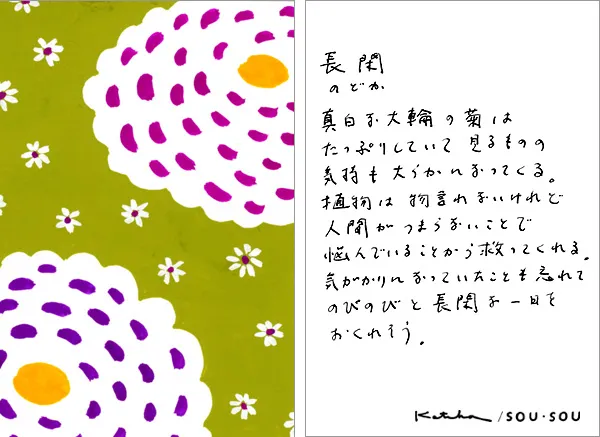 長閑
のどか
真白な大輪の菊は
たっぷりしていて見るものの
気持も大らかになってくる。
植物は物言わないけれど
人間がつまらないことで
悩んでいることから救ってくれる。
気がかりになっていたことも忘れて
のびのびと長閑な一日を
おくれそう。
/SOU・SOU